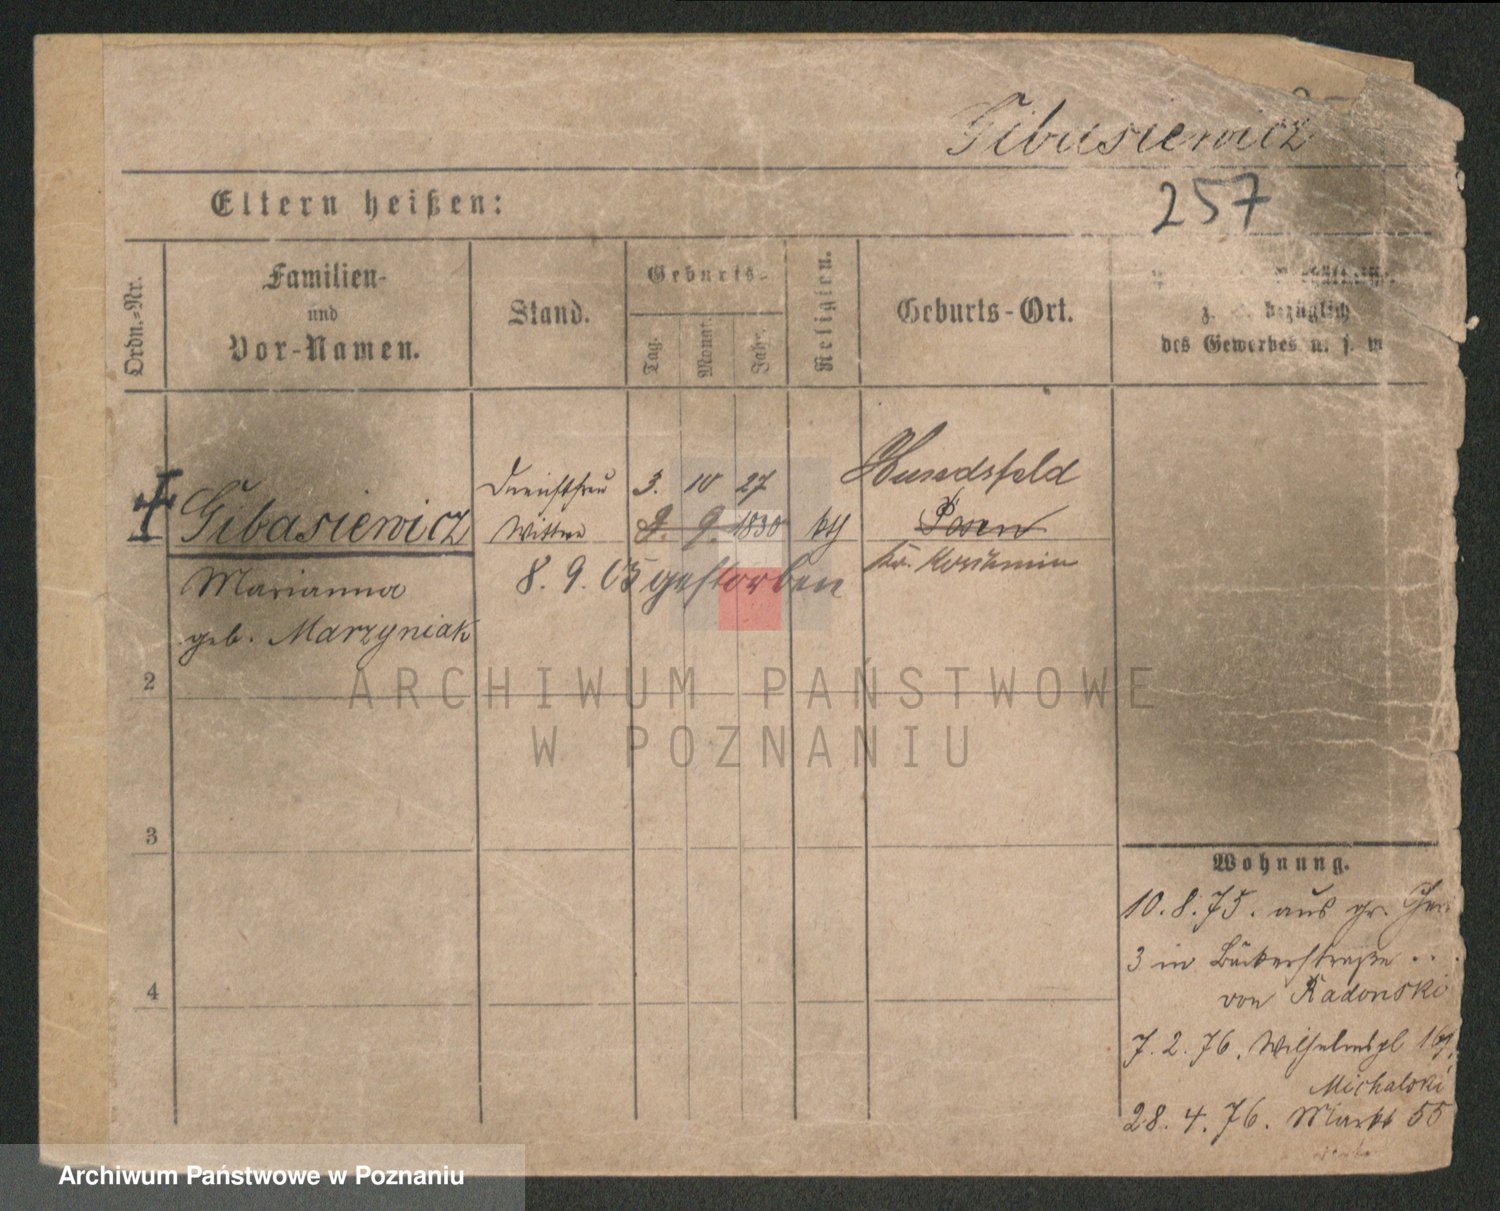 Gibasiewicz
257
Eltern heißen:
Ordn.-Nr.
Familien-
und
Vor-Namen.
Stand.
Geburts-
Tag.
Monat.
Jahr.
Religion.
Geburts-Ort.
z. B. bezüglich
des Gewerbes u. s. w
Gibasiewicz
Marianna
geb. Marzyniak
Wittwe
3. 10 27
9. 9. 1830
kth
8. 9. 03 gestorben
Hundsfeld
Posen
Kr. Koschmin
2
3
4
Wohnung.
10. 8. 75. aus gr.
3 in Bäckerstraße
von Radonski
7. 2. 76. Wilhelmspl 16
Michalski
28. 4. 76. Markt 55
ARCHIWUM PAŃSTWOWE
W POZNANIU
Archiwum Państwowe w Poznaniu